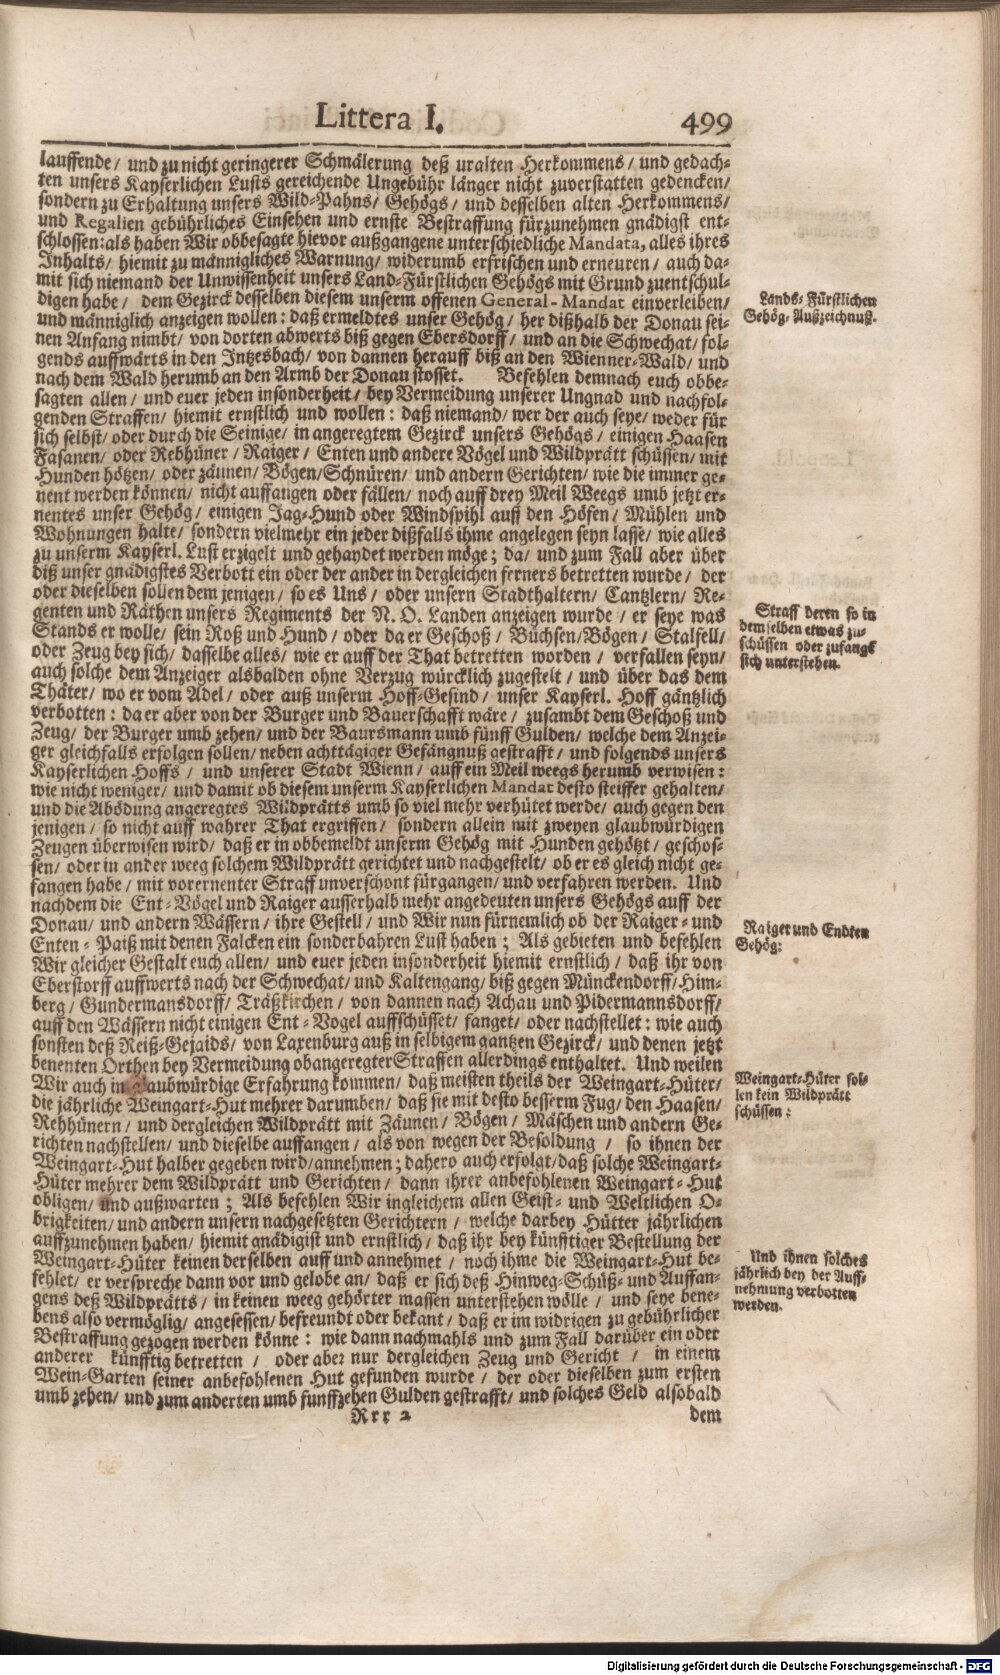 Littera I. 499
lauffende/ und zu nicht geringerer Schmälerung deß uralten Herkommens/ und gedach-
ten unsers Kayserlichen Lusts gereichende Ungebühr länger nicht zuverstatten gedencken/
sondern zu Erhaltung unsers Wild-Pahns/ Gehögs/ und desselben alten Herkommens/
und Regalien gebührliches Einsehen und ernste Bestraffung fürzunehmen gnädigst ent-
schlossen: als haben Wir obbesagte hievor außgangene unterschiedliche Mandata, alles ihres
Inhalts/ hiemit zu männigliches Warnung/ widerumb erfrischen und erneuren/ auch da-
mit sich niemand der Unwissenheit unsers Land-Fürstlichen Gehögs mit Grund zuentschul-
digen habe/ dem Gezirck desselben diesem unserm offenen General-Mandat einverleiben/
Lands-Fürstlichen
Gehög-Außzeichnuß.
und männiglich anzeigen wollen: daß ermeldtes unser Gehög/ her dißhalb der Donau sei-
nen Anfang nimbt/ von dorten abwerts biß gegen Ebersdorff/ und an die Schwechat/ fol-
gends auffwärts in den Intzesbach/ von dannen herauff biß an den Wienner-Wald/ und
nach dem Wald herumb an den Armb der Donau stosset. Befehlen demnach euch obbe-
sagten allen/ und euer jeden insonderheit/ bey Vermeidung unserer Ungnad und nachfol-
genden Straffen/ hiemit ernstlich und wollen: daß niemand/ wer der auch seye/ weder für
sich selbst/ oder durch die Seinige/ in angeregtem Gezirck unsers Gehögs/ einigen Haasen
Fasanen/ oder Rebhüner/ Raiger/ Enten und andere Vögel und Wildprätt schüssen/ mit
Hunden hötzen/ oder zäunen/ Bögen/Schnüren/ und andern Gerichten/ wie die immer ge-
nent werden können/ nicht auffangen oder fällen/ noch auff drey Meil Weegs umb jetzt er-
nentes unser Gehög/ einigen Jag-Hund oder Windspihl auff den Höfen/ Mühlen und
Wohnungen halte/ sondern vielmehr ein jeder dißfalls ihme angelegen seyn lasse/ wie alles
zu unserm Kayserl. Lust erzigelt und gehaydet werden möge; da/ und zum Fall aber über
diß unser gnädigstes Verbott ein oder der ander in dergleichen ferners betretten wurde/ der
oder dieselben sollen dem jenigen/ so es Uns/ oder unsern Stadthaltern/ Cantzlern/ Re-
genten und Räthen unsers Regiments der N. O. Landen anzeigen wurde/ er seye was
Straff deren so in
demselben etwas zu-
schüssen oder zufangẽ
sich unterstehen.
Stands er wolle/ sein Roß und Hund/ oder da er Geschoß/ Büchsen/Bögen/ Stalsell/
oder Zeug bey sich/ dasselbe alles/ wie er auff der That betretten worden/ verfallen seyn/
auch solche dem Anzeiger alsbalden ohne Verzug würcklich zugestelt/ und über das dem
Thäter/ wo er vom Adel/ oder auß unserm Hoff-Gesind/ unser Kayserl. Hoff gäntzlich
verbotten: da er aber von der Burger und Bauerschafft wäre/ zusambt dem Geschoß und
Zeug/ der Burger umb zehen/ und der Baursmann umb fünff Gulden/ welche dem Anzei-
ger gleichfalls erfolgen sollen/ neben achttägiger Gefängnuß gestrafft/ und folgends unsers
Kayserlichen Hoffs/ und unserer Stadt Wienn/ auff ein Meil weegs herumb verwisen:
wie nicht weniger/ und damit ob diesem unserm Kayserlichen Mandat desto steiffer gehalten/
und die Abödung angeregtes Wildprätts umb so viel mehr verhütet werde/ auch gegen den
jenigen/ so nicht auff wahrer That ergriffen/ sondern allein mit zweyen glaubwürdigen
Zeugen überwisen wird/ daß er in obbemeldt unserm Gehög mit Hunden gehötzt/ geschos-
sen/ oder in ander weeg solchem Wildprätt gerichtet und nachgestelt/ ob er es gleich nicht ge-
fangen habe/ mit vorernenter Straff unverschont fürgangen/ und verfahren werden. Und
nachdem die Ent-Vögel und Raiger ausserhalb mehr angedeuten unsers Gehögs auff der
Donau/ und andern Wässern/ ihre Gestell/ und Wir nun fürnemlich ob der Raiger- und
Raiger und Endten
Gehög:
Enten-Paiß mit denen Falcken ein sonderbahren Lust haben; Als gebieten und befehlen
Wir gleicher Gestalt euch allen/ und euer jeden insonderheit hiemit ernstlich/ daß ihr von
Eberstorff auffwerts nach der Schwechat/ und Kaltengang/ biß gegen Münckendorff/ Him-
berg/ Gundermansdorff/ Träßkirchen/ von dannen nach Achau und Pidermannsdorff/
auff den Wässern nicht einigen Ent-Vogel auffschüsset/ fanget/ oder nachstellet: wie auch
sonsten deß Reiß-Gejaids/ von Laxenburg auß in selbigem gantzen Gezirck/ und denen jetzt
benenten Orthen bey Vermeidung obangeregter Straffen allerdings enthaltet. Und weilen
Wir auch in glaubwürdige Erfahrung kommen/ daß meisten theils der Weingart-Hüter/
Weingart-Hüter sol-
len kein Wildprätt
schüssen:
die jährliche Weingart-Hut mehrer darumben/ daß sie mit desto besserm Fug/ den Haasen/
Rebhünern/ und dergleichen Wildprätt mit Zäunen/ Bögen/ Mäschen und andern Ge-
richten nachstellen/ und dieselbe auffangen/ als von wegen der Besoldung/ so ihnen der
Weingart-Hut halber gegeben wird/annehmen; dahero auch erfolgt/daß solche Weingart-
Hüter mehrer dem Wildprätt und Gerichten/ dann ihrer anbefohlenen Weingart-Hut
obligen/ und außwarten; Als befehlen Wir ingleichem allen Geist- und Weltlichen O-
brigkeiten/ und andern unsern nachgesetzten Gerichtern/ welche darbey Hütter jährlichen
auffzunehmen haben/ hiemit gnädigist und ernstlich/ daß ihr bey künfftiger Bestellung der
Weingart-Hüter keinen derselben auff und annehmet/ noch ihme die Weingart-Hut be-
Und ihnen solches
jährlich bey der Auff-
nehmung verbotten
werden.
fehlet/ er verspreche dann vor und gelobe an/ daß er sich deß Hinweg-Schüß- und Auffan-
gens deß Wildprätts/ in keinen weeg gehörter massen unterstehen wölle/ und seye bene-
bens also vermöglig/ angesessen/ befreundt oder bekant/ daß er im widrigen zu gebührlicher
Bestraffung gezogen werden könne: wie dann nachmahls und zum Fall darüber ein oder
anderer künfftig betretten/ oder aber nur dergleichen Zeug und Gericht/ in einem
Wein-Garten seiner anbefohlenen Hut gefunden wurde/ der oder dieselben zum ersten
umb zehen/ und zum anderten umb funffzehen Gulden gestrafft/ und solches Geld alsobald
Rrr 2 dem
Digitalisierung gefördert durch die Deutsche Forschungsgemeinschaft - DFG